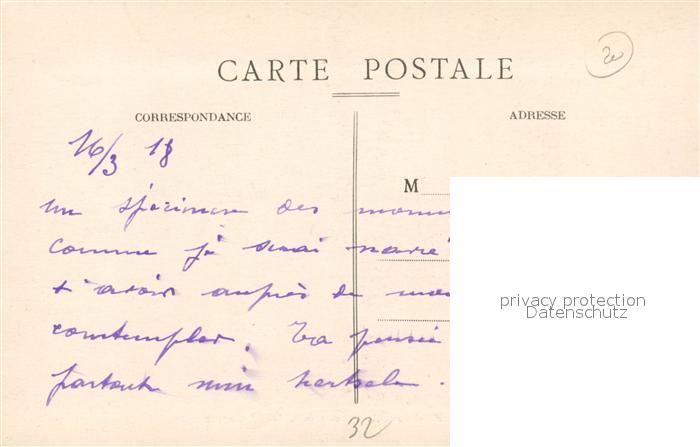 CARTE POSTALE
CORRESPONDANCE
ADRESSE
16/3 18
M
un spécimen des
comme je serai
t'avoir auprès de
contempler. Ta pensée
partout
32
privacy protection
Datenschutz